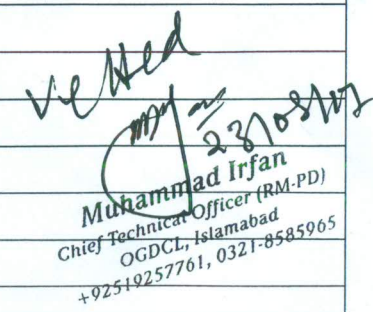 Vetted
Muhammad Irfan
Chief Technical Officer (RM-PD)
OGDCL, Islamabad
+92519257761, 0321-8585965